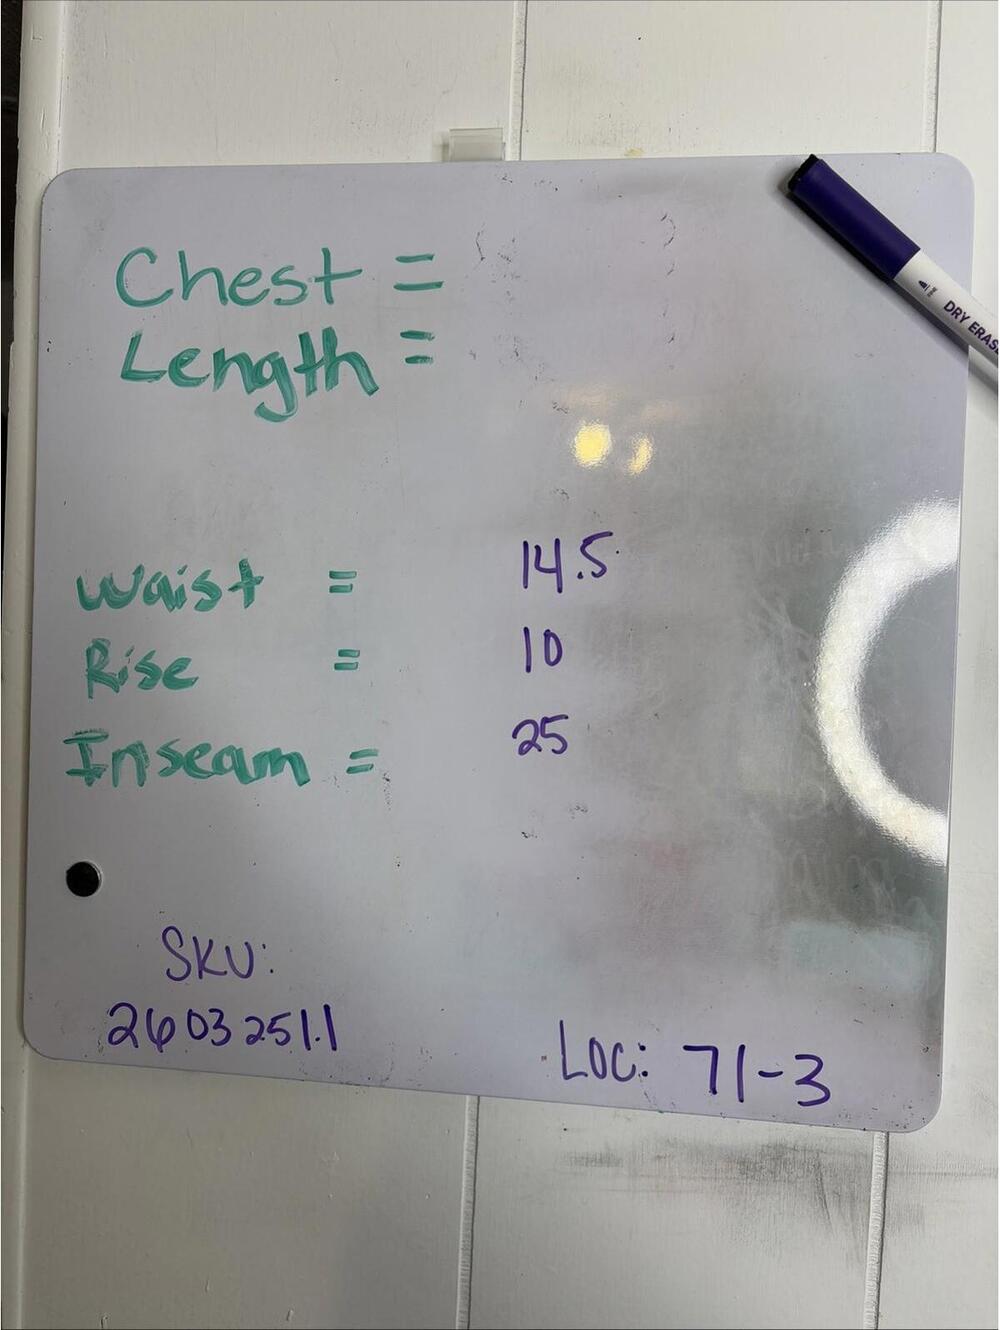 Chest =
Length =
Waist = 14.5
Rise = 10
Inseam = 25
SKU:
2603251.1
Loc: 71-3
FINE
DRY ERAS